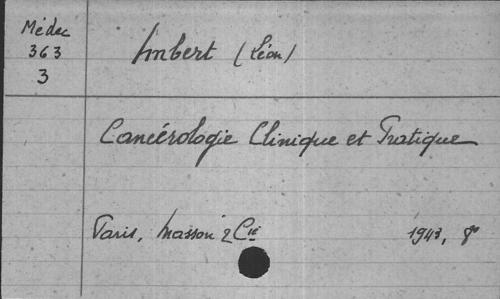 Médec
363
3
Imbert (Léon)
Cancérologie Clinique et Pratique
Paris, Masson & Cie 1943, 8°